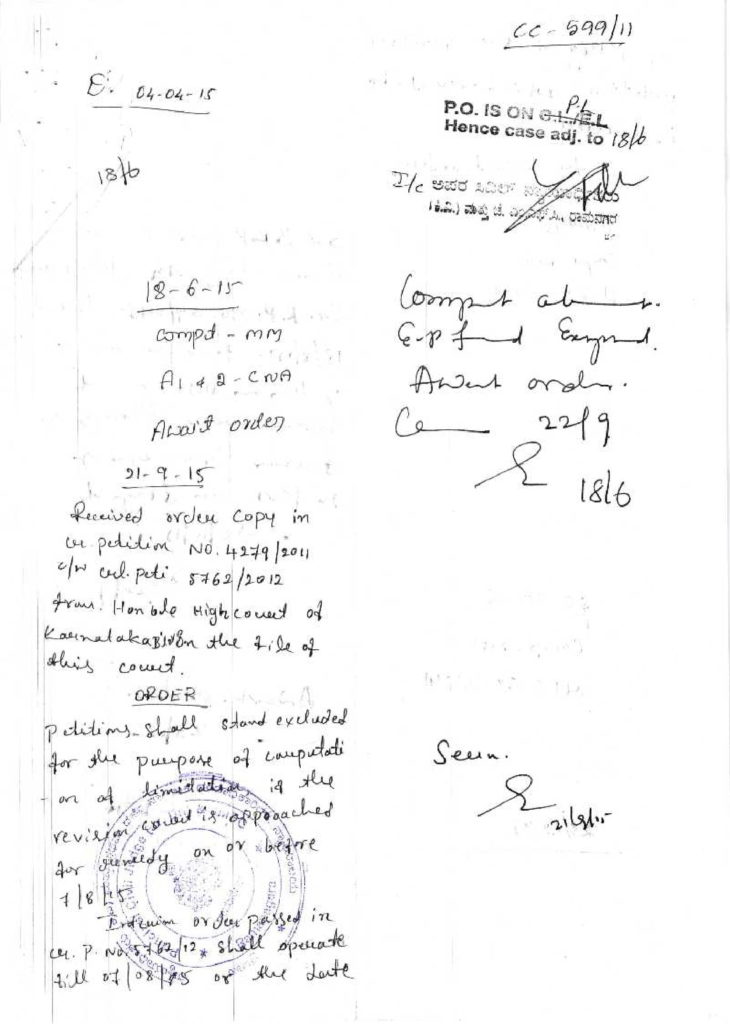 CC - 599/11
D. 04-04-15
P.L
P.O. IS ON C.L./E.L
Hence case adj. to 18/6
18/6
I/c ಅಪರ ಸಿವಿಲ್
(ಕಿ.ವಿ.) ಮತ್ತು ಜೆ. ಎಂ.ಎಫ್.ಸಿ., ರಾಮನಗರ
18-6-15
Compt - MM
A1 & 2 - CNA
Await order
Compt absent.
E.P filed Exempted.
Await order.
22/9
18/6
21-9-15
Received order copy in
cr. petition NO. 4279/2011
c/w crl. peti. 5762/2012
from. Hon'ble High court of
Karnataka on the file of
this court.
ORDER
petitions shall stand excluded
for the purpose of computati
on of limitation if the
revision court is approached
for remedy on or before
7/8/15
Interim order passed in
cr. P. No. 5762/12 shall operate
till 07/08/15 or the date
Seen.
21/9/15